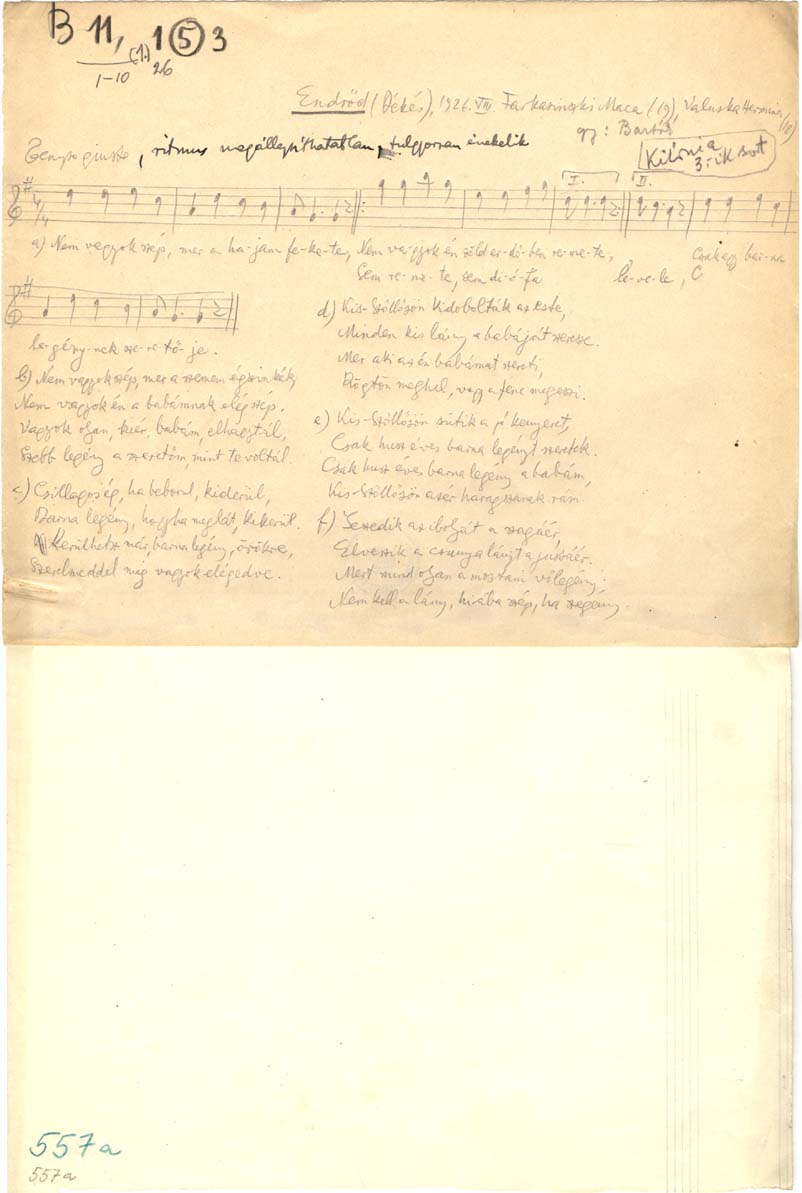 B 11, 1 (5) 3
1-10 (1.) 26
Endrőd (Békés), 1926. VIII. Farkasinszki Maca (19), Valuska Hermina (18)
gy: Bartók
Tempo giusto, ritmus megállapíthatatlan, tulgyorsan éneklik
Kiírnia 3.-ik sort
I. II.
a) Nem vagyok szép, mer a ha-jam fe-ke-te, Nem va-gyok én zöld er-dő-ben re-me-te, Csak egy bar-na
Sem re-me-te, sem di-ó-fa le-ve-le, C
le-gény-nek sze-re-tő-je.
b) Nem vagyok szép, mer a szemem égszin kék,
Nem vagyok én a babámnak elég szép.
Vagyok olyan, kiér, babám, elhagytál,
Szebb legény a szeretőm, mint te voltál.
c) Csillagos ég, ha beborul, kiderül,
Barna legény, hogyha meglát, kikerül.
Kerülhetsz már, barna legény, örökre,
Szerelmeddel míg vagyok elégedve.
d) Kis-Szőllősön kidobolták az este,
Minden kis lány a babáját szeresse.
Mer aki az én babámat szereti,
Rögtön meghal, vagy a fene megeszi.
e) Kis-Szőllősön sütik a jó kenyeret,
Csak husz éves barna legényt szeretek.
Csak husz éves barna legény a babám,
Kis-Szőllősön azér haragszanak rám.
f) Szedik az ibolyát a szagáér,
Elveszik a csunya lányt a jussáér.
Mert mind olyan a mostani vőlegény.
Nem kell a lány, hiába szép, ha szegény.
557a
557a